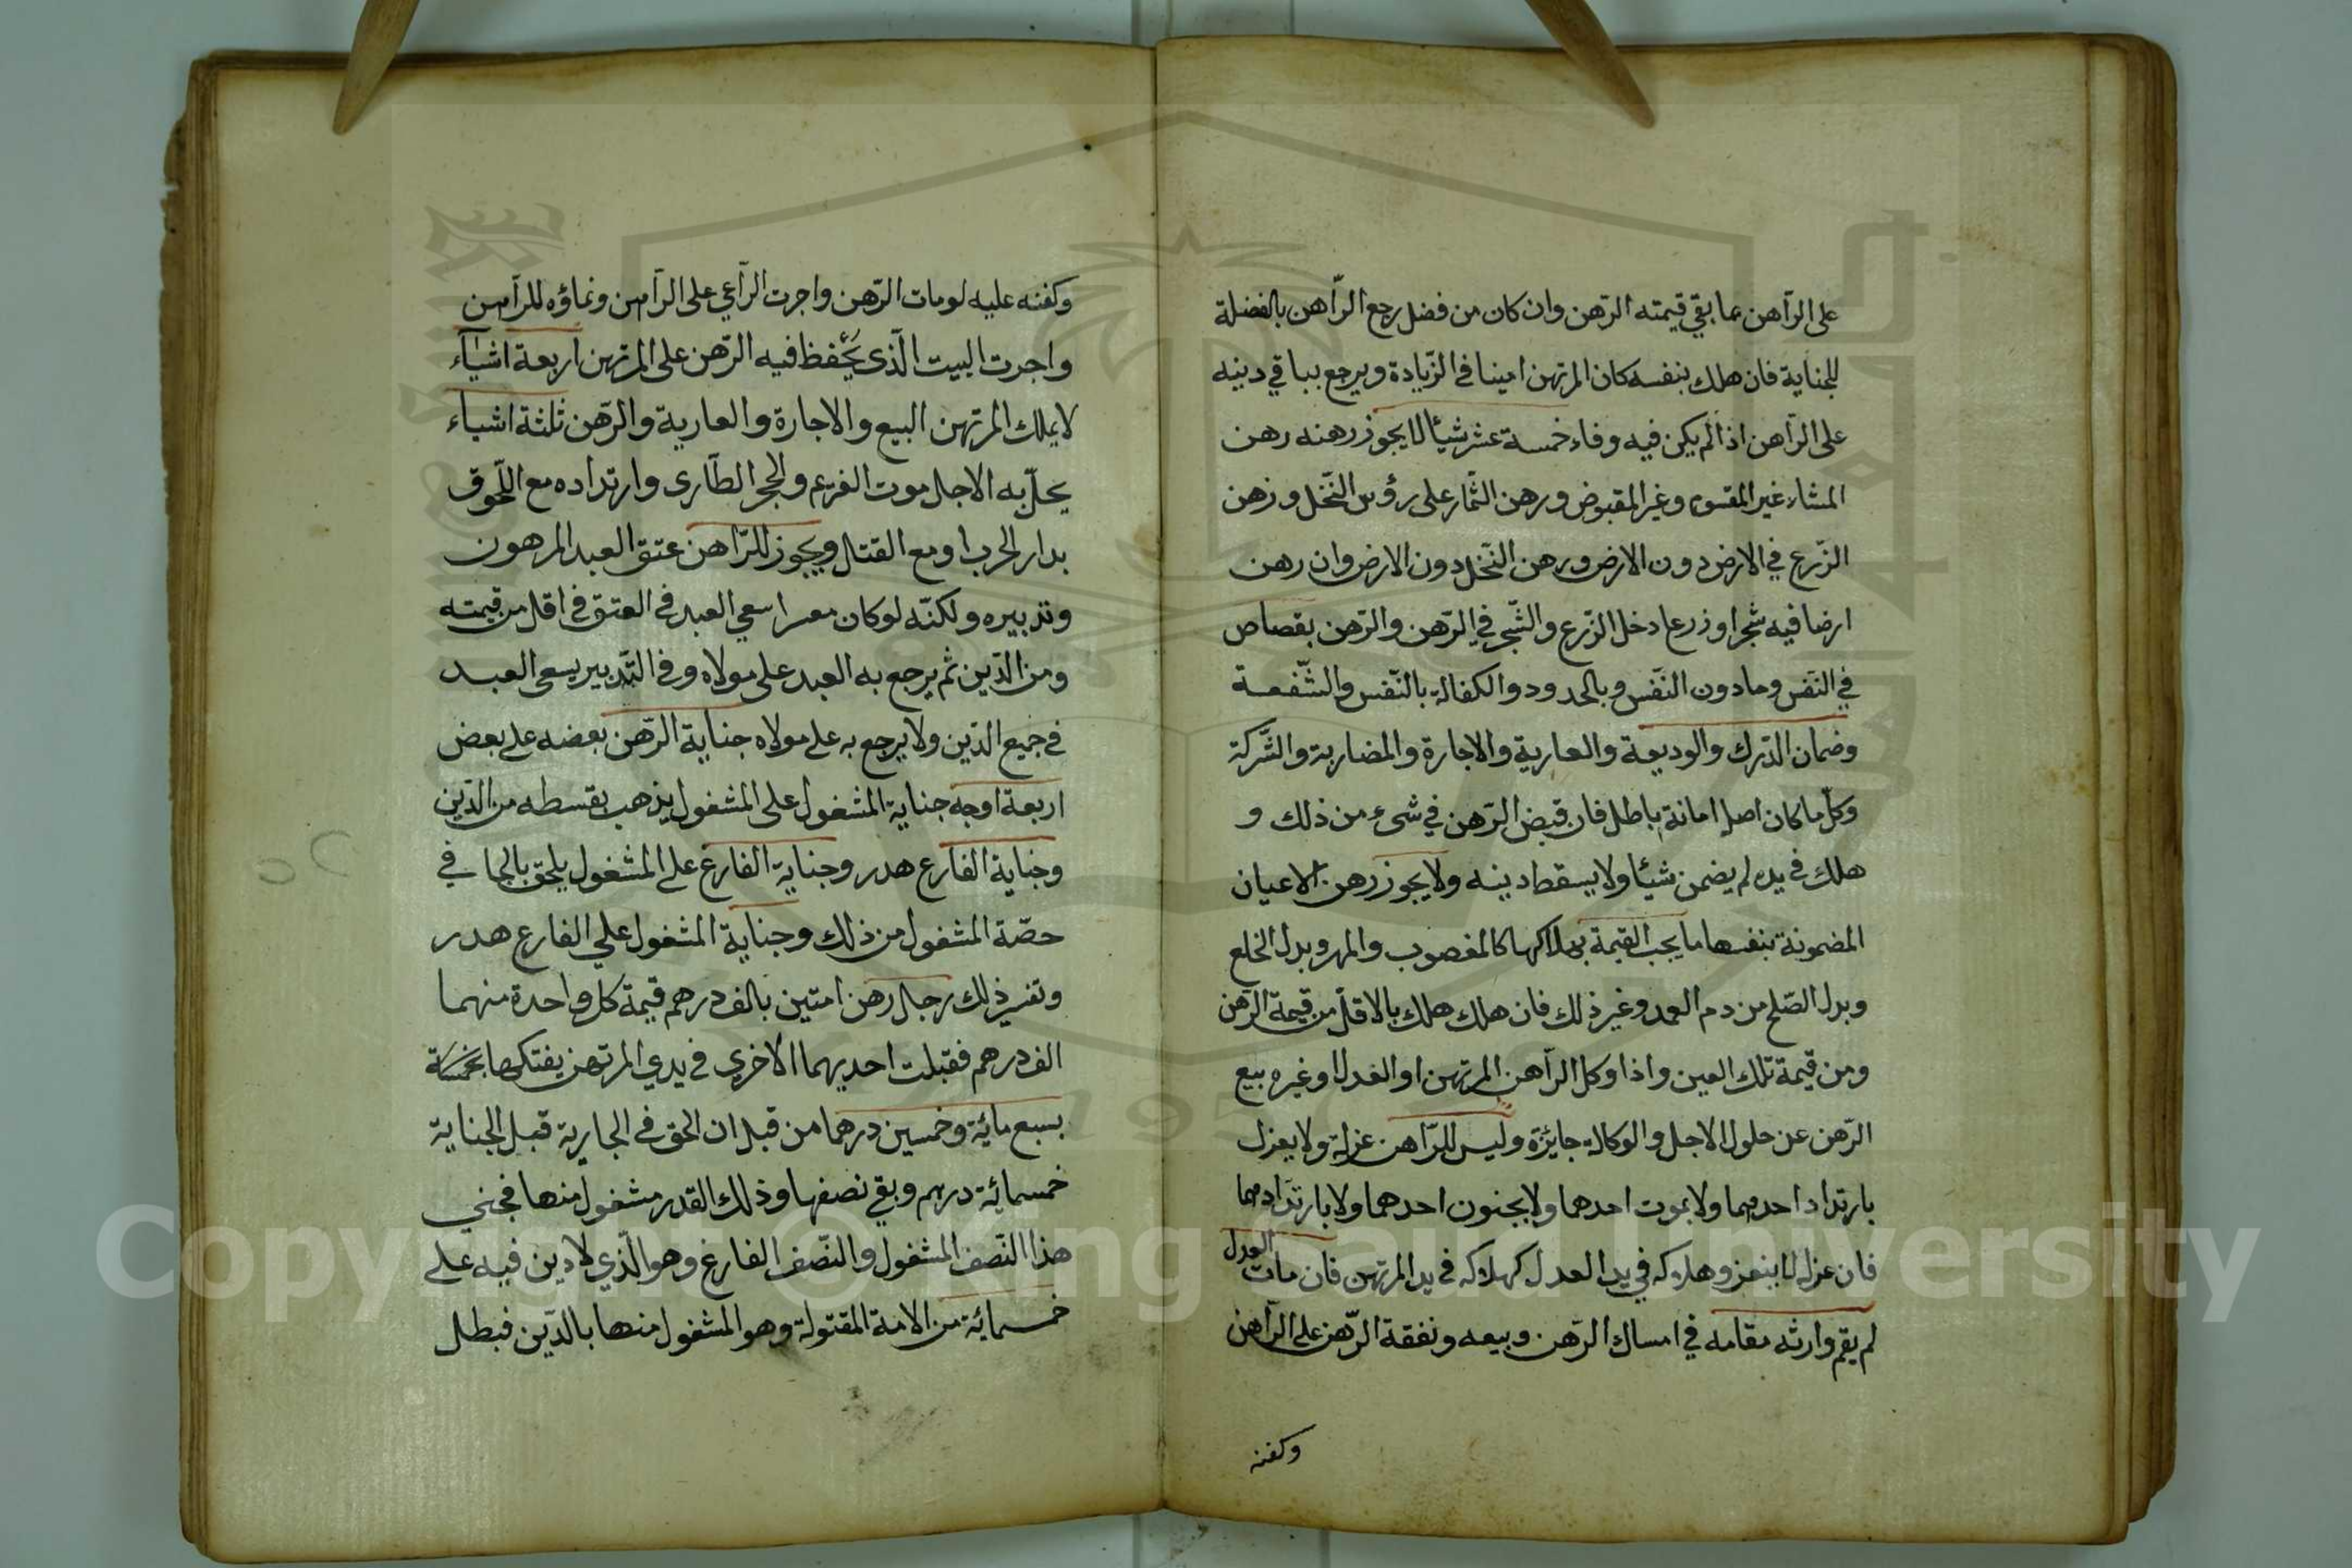 على الرّاهن عما بقي قيمته الرّهن وان كان من فضل رجع الرّاهن بالفضلة
للجناية فان هلك بنفسه كان المرتهن امينا في الزّيادة ويرجع بباقي دينه
على الرّاهن اذا لم يكن فيه وفاء خمسة عشر شيأ لا يجوز رهنه رهن
المشاء غير المقسوم وغير المقبوض ورهن الثّمار على رؤس النّخل ورهن
الزّرع في الارض دون الارض ورهن النّخل دون الارض وان رهن
ارضا فيه شجرا وزرعا دخل الزّرع والشّجر في الرّهن والرّهن بقصاص
في النّفس وما دون النّفس وبالحدود والكفالة بالنّفس والشّفعة
وضمان الدّرك والوديعة والعارية والاجارة والمضاربة والشّركة
وكلّ ما كان اصله امانة باطل فان قبض الرّهن في شيء من ذلك و
هلك في يده لم يضمن شيئا ولا يسقط دينه ولا يجوز رهن الاعيان
المضمونة بنفسها ما يجب القيمة بهلاكها كالمغصوب والمهر وبدل الخلع
وبدل الصّلح من دم العمد وغير ذلك فان هلك هلك بالاقلّ من قيمة الرّهن
ومن قيمة تلك العين واذا وكل الرّاهن المرتهن او العدل او غيره ببيع
الرّهن عن حلول الاجل والوكالة جايئزة وليس للرّاهن عزله ولا يعزل
بارتداد احدهما ولا بموت احدهما ولا بجنون احدهما ولا بارتدادهما
فان عزله لا ينعزل وهلاكه في يد العدل كهلاكه في يد المرتهن فان مات العدل
لم يقم وارثه مقامه في امساك الرّهن وبيعه ونفقة الرّهن على الرّاهن
وكفنه
وكفنه عليه لو مات الرّهن واجرت الرّاعي على الرّاهن ونماؤه للرّاهن
واجرت البيت الّذي يحفظ فيه الرّهن على المرتهن اربعة اشيآء
لا يملك المرتهن البيع والاجارة والعارية والرّهن ثلثة اشياء
يحلّ به الاجل موت الغريم والحجر الطّارى وارتداده مع اللّحوق
بدار الحرب او مع القتل ويجوز للرّاهن عتق العبد المرهون
وتدبيره ولكنّه لو كان معسرا سعي العبد في العتق في اقل من قيمته
ومن الدّين ثم يرجع به العبد على مولاه وفي التّدبير يسعى العبد
في جميع الدّين ولا يرجع به على مولاه جناية الرّهن بعضه على بعض
اربعة اوجه جناية المشغول على المشغول يذهب بقسطه من الدّين
وجناية الفارع هدر وجناية الفارغ على المشغول يلحق بالجا في
حصّة المشغول من ذلك وجناية المشغول علي الفارع هدر
وتفسير ذلك رجل رهن امتين بالف درهم قيمة كل واحدة منهما
الف درهم فقتلت احديهما الاخري في يدي المرتهن يفتكها بخمسمائة
بسبع مائة وخمسين درهما من قبل ان الحق في الجارية قبل الجناية
خمسمائة درهم وبقي نصفها وذلك القدر مشغول منها فجني
هذا النّصف المشغول والنّصف الفارغ وهو الّذي لا دين فيه على
خمسمائة من الامة المقتولة وهو المشغول منها بالدّين فبطل
Copyright © King Saud University
1957